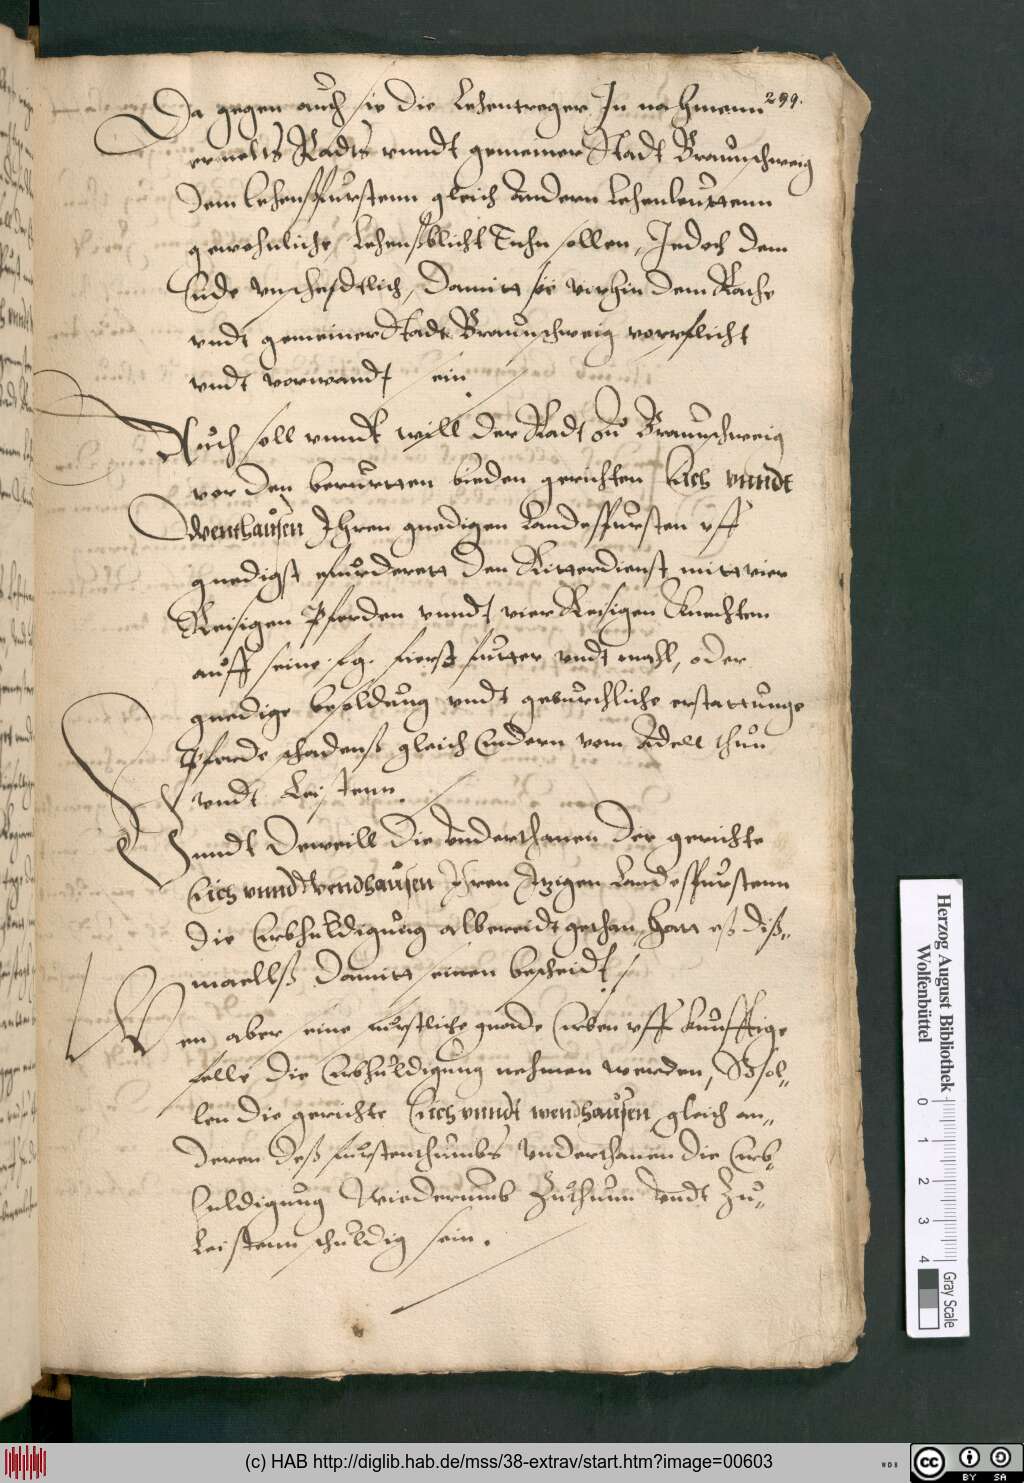 299.
Da gegen auch sie die Lehentreger In nahmenn
ernelts Radts vnndt gemeiner Stadt Braunschweig
dem Lehensffurstenn gleich Andern Lehenleuttenn
gewohnliche Lehens Tuhn sollen, Jedoch dem
Eide vnschedtlich, damitt sie vorhin dem Rathe
vndt gemeiner Stadt Braunschweig vorpflicht
vndt vorwandt sein
Auch soll vnndt will der Radt zu Braunschweig
von den berurtten beeden gerichten Eich vnndt
Wenthausen Ihren gnedigen Landesfursten vff
gnedigst erfurderntt den Ritterdienst mitt vier
Reisigen Pferden vnndt vier Reisigen Knechten
auff seine f. g. futter vndt mahl, oder
gnedige besoldung vndt geburliche erstattunge
Pferde schadenß gleich Andern vom Adell thun
vndt Leistenn.
Vnndt Deweill die Vnderthanen der gerichte
Eich vnndt Wendhausen Ihren Itzigen Landesfurstenn
die Erbhuldigung albereidt gethan, Hatt eß diß-
maellß damitt seinen bescheidt,
Wen aber seine furstliche gnade Erben vff kunfftige
felle die Erbhuldigung nehmen werden, Sol-
len die gerichte Eich vnndt Wendhausen gleich an-
deren deß furstenthumbs Vnderthanen die Erb-
huldigung Wiederumb Zuthunn Vndt Zu-
Leistenn schuldig sein.
Herzog August Bibliothek
Wolfenbüttel
0 1 2 3 4
Gray Scale
(c) HAB http://diglib.hab.de/mss/38-extrav/start.htm?image=00603
WDB
CC BY SA